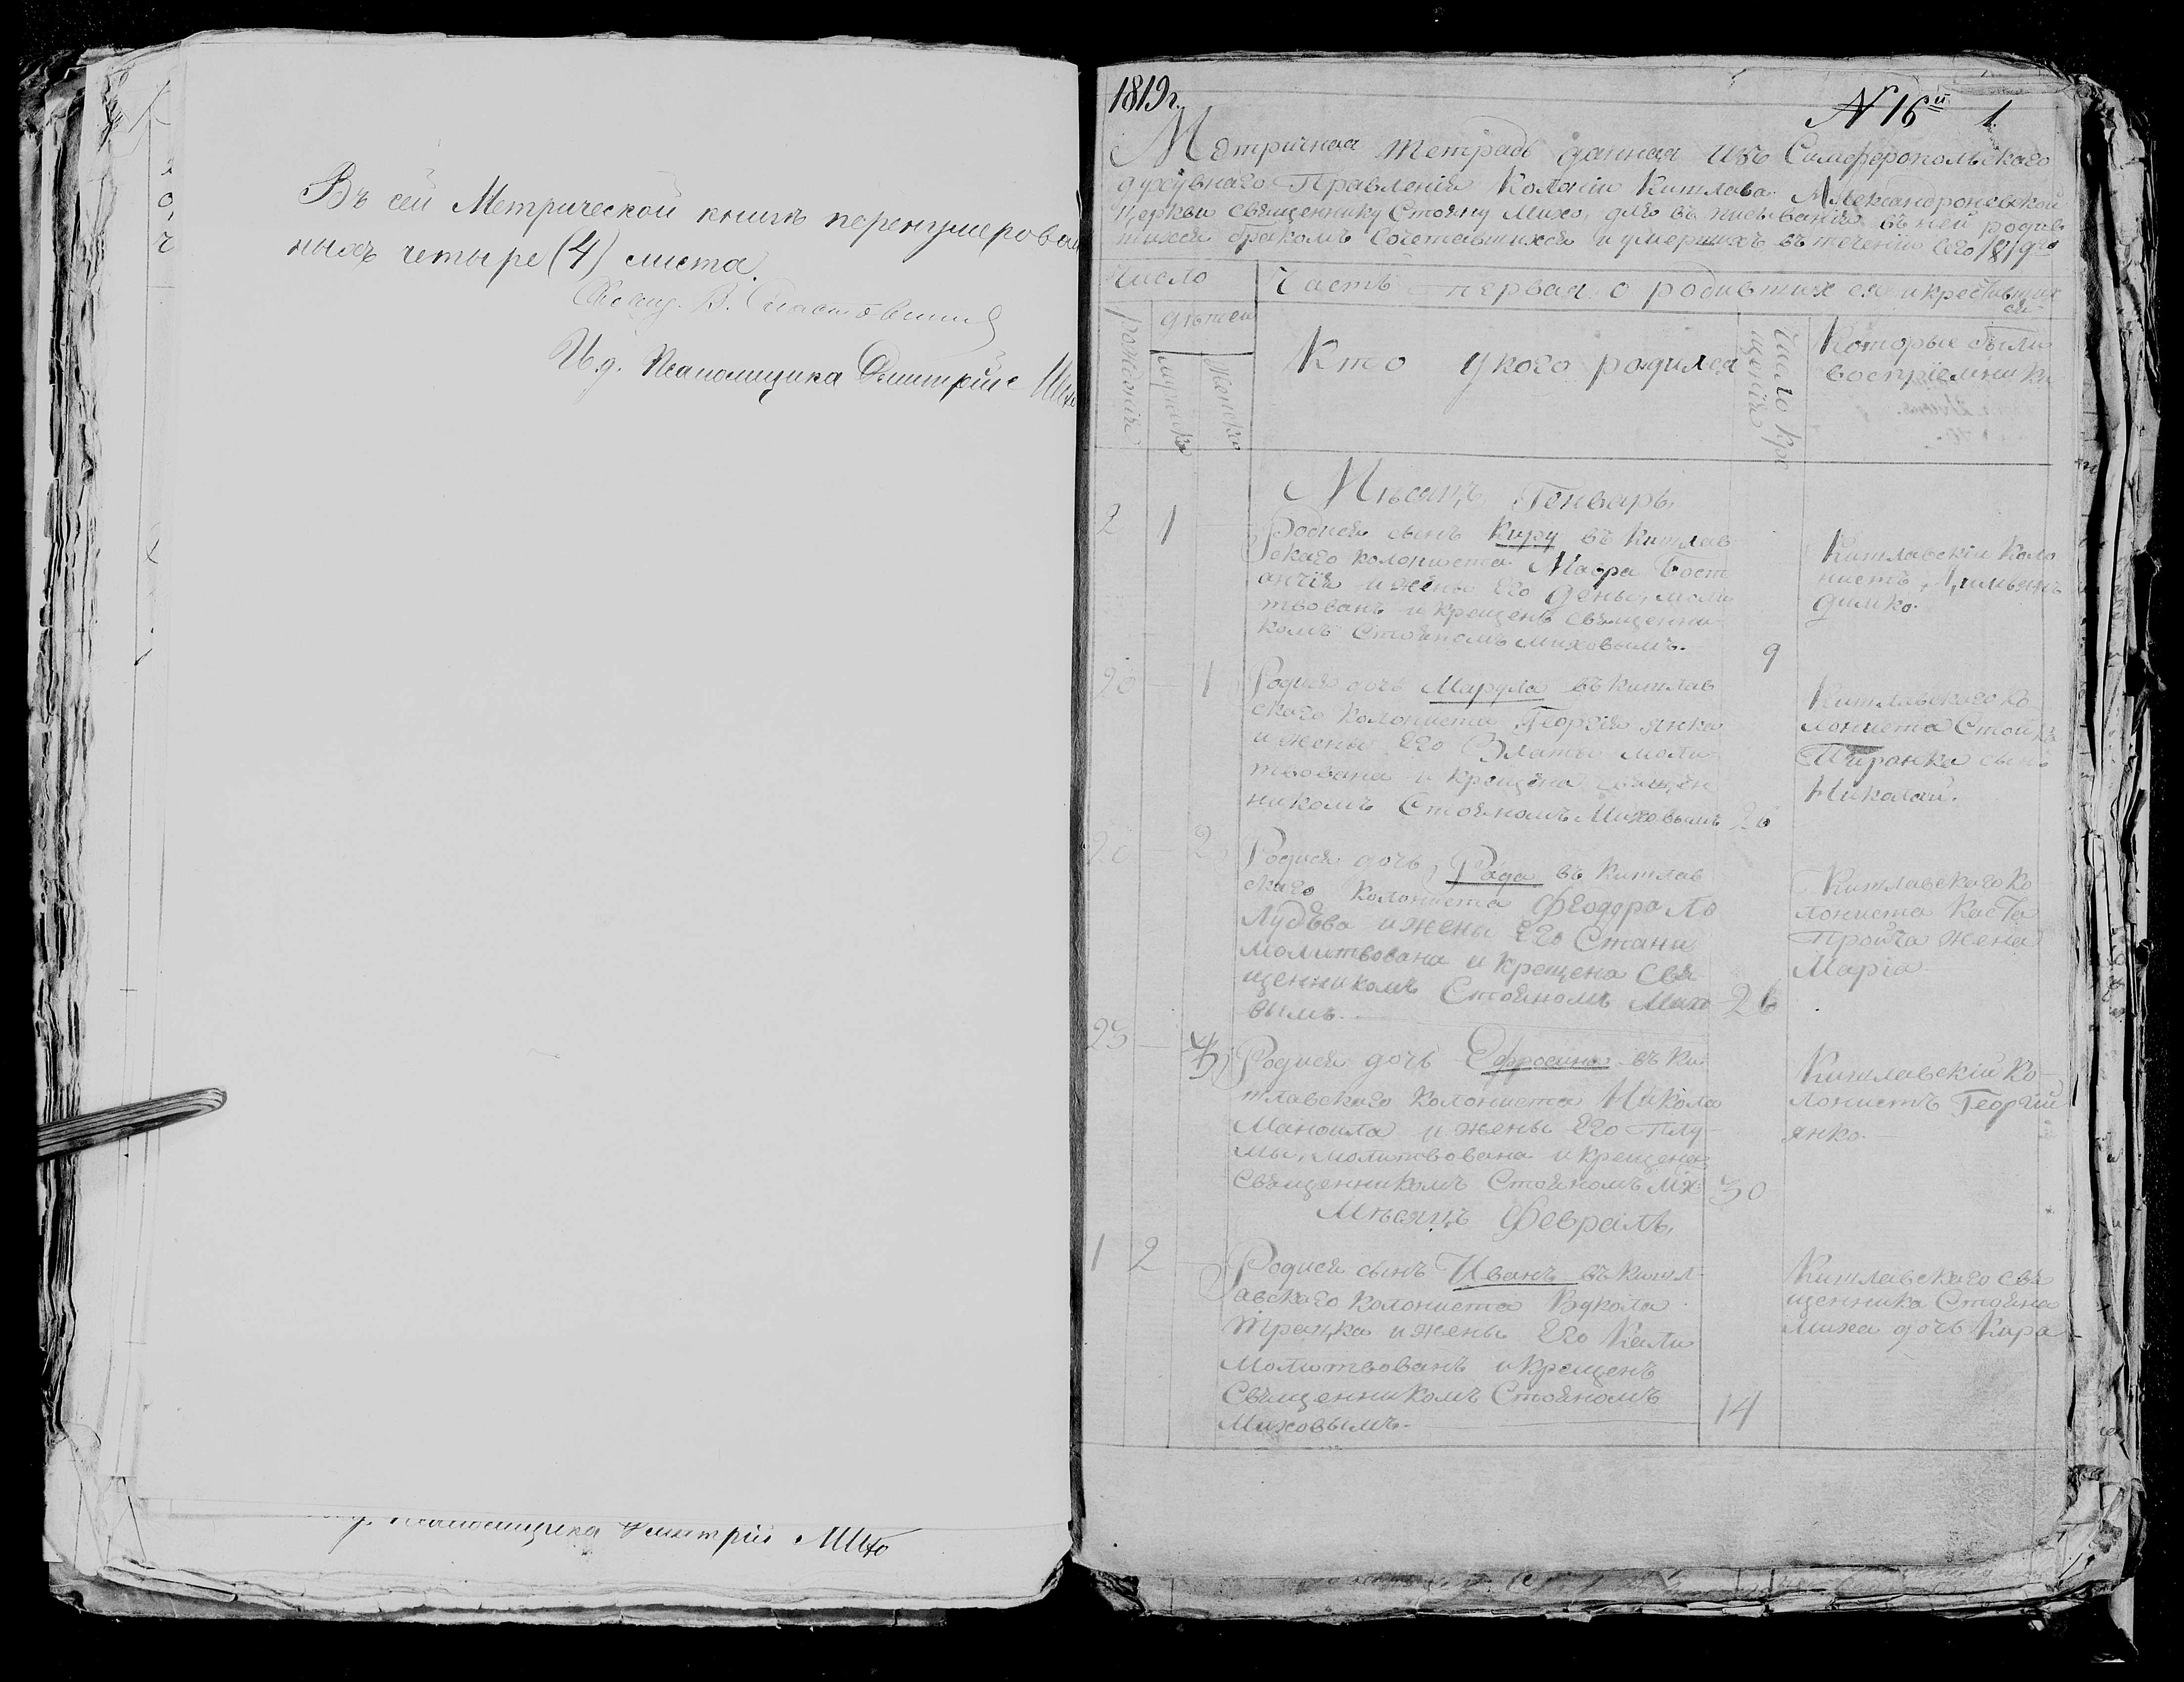 Въ сей Метрической книгѣ перенумерован
ныхъ четыре (4) листа.
И.д. Псаломщика Дмитрій
Псаломщика Дмитрій
1819г.
N 16й 1.
Метричная тетрадь данная изъ Симферопольскаго
духовнаго Правленія Колоніи Китлава Александроневской
Церкви священнику Стояну Михо, для въписыванія въ ней родив
шихся бракомъ сочетавшихся и умершихъ въ теченіи сего 1819го
Число
Часть первая о родившихся и крестивших
ся
рожденія
дѣтей
мужеска
женска
Кто у кого родился
Число кре
щенія
Которые были
воспріемники
Мѣсяцъ Генварь
2 1
Родися сынъ Киру въ Китлав
скаго колониста Мавра Бост
анчія и жены его Дены, моли
твованъ и крещенъ священни
комъ Стояномъ Миховымъ.
9
Китлавскій Коло
нистъ
Димко.
1
Родися дочь Марула въ Китлав
скаго колониста Георгія Янка
и жены его Златы моли
твована и крещена священ
никомъ Стояномъ Миховымъ
26
Китлавскаго Ко
лониста Стойка
сынъ
Николай.
20 2
Родися дочь Рада въ Китлав
скаго колониста Феодора Ло
и жены его Стани
молитвована и крещена свя
щенникомъ Стояномъ Михо
вымъ.
26
Китлавскаго Ко
лониста
жена
Марія
23 3
Родися дочь Ефросина въ Ки
тлавскаго колониста Никола
Маноила и жены его
мы, молитвована и крещена
священникомъ Стояномъ Мх:
30
Китлавскій Ко
лонистъ Георгій
Янко.
Мѣсяцъ Февраль
1 2
Родися сынъ Иванъ въ Китл
авскаго колониста Вукола
и жены его Кали
молитвованъ и крещенъ
священникомъ Стояномъ
Миховымъ.
14
Китлавскаго свя
щенника Стояна
Миха дочь Кира